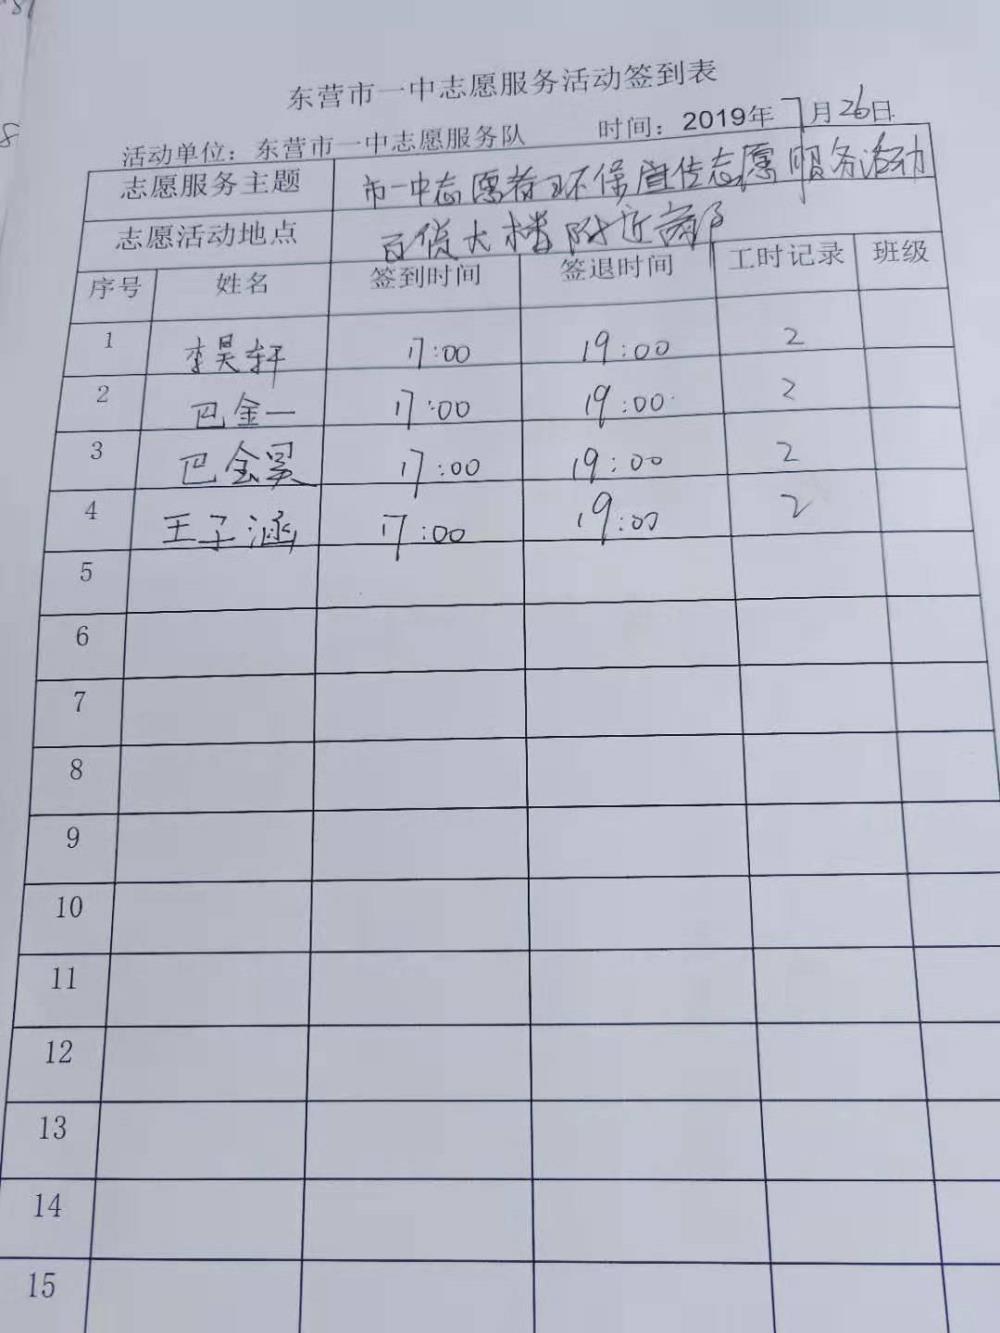 东营市一中志愿服务活动签到表
活动单位：东营市一中志愿服务队 时间：2019年7月26日
志愿服务主题 市一中志愿者环保宣传志愿服务活动
志愿活动地点 百货大楼附近
序号 姓名 签到时间 签退时间 工时记录 班级
1 李昊轩 17:00 19:00 2
2 巴金一 17:00 19:00 2
3 巴金昊 17:00 19:00 2
4 王子涵 17:00 19:00 2
5
6
7
8
9
10
11
12
13
14
15